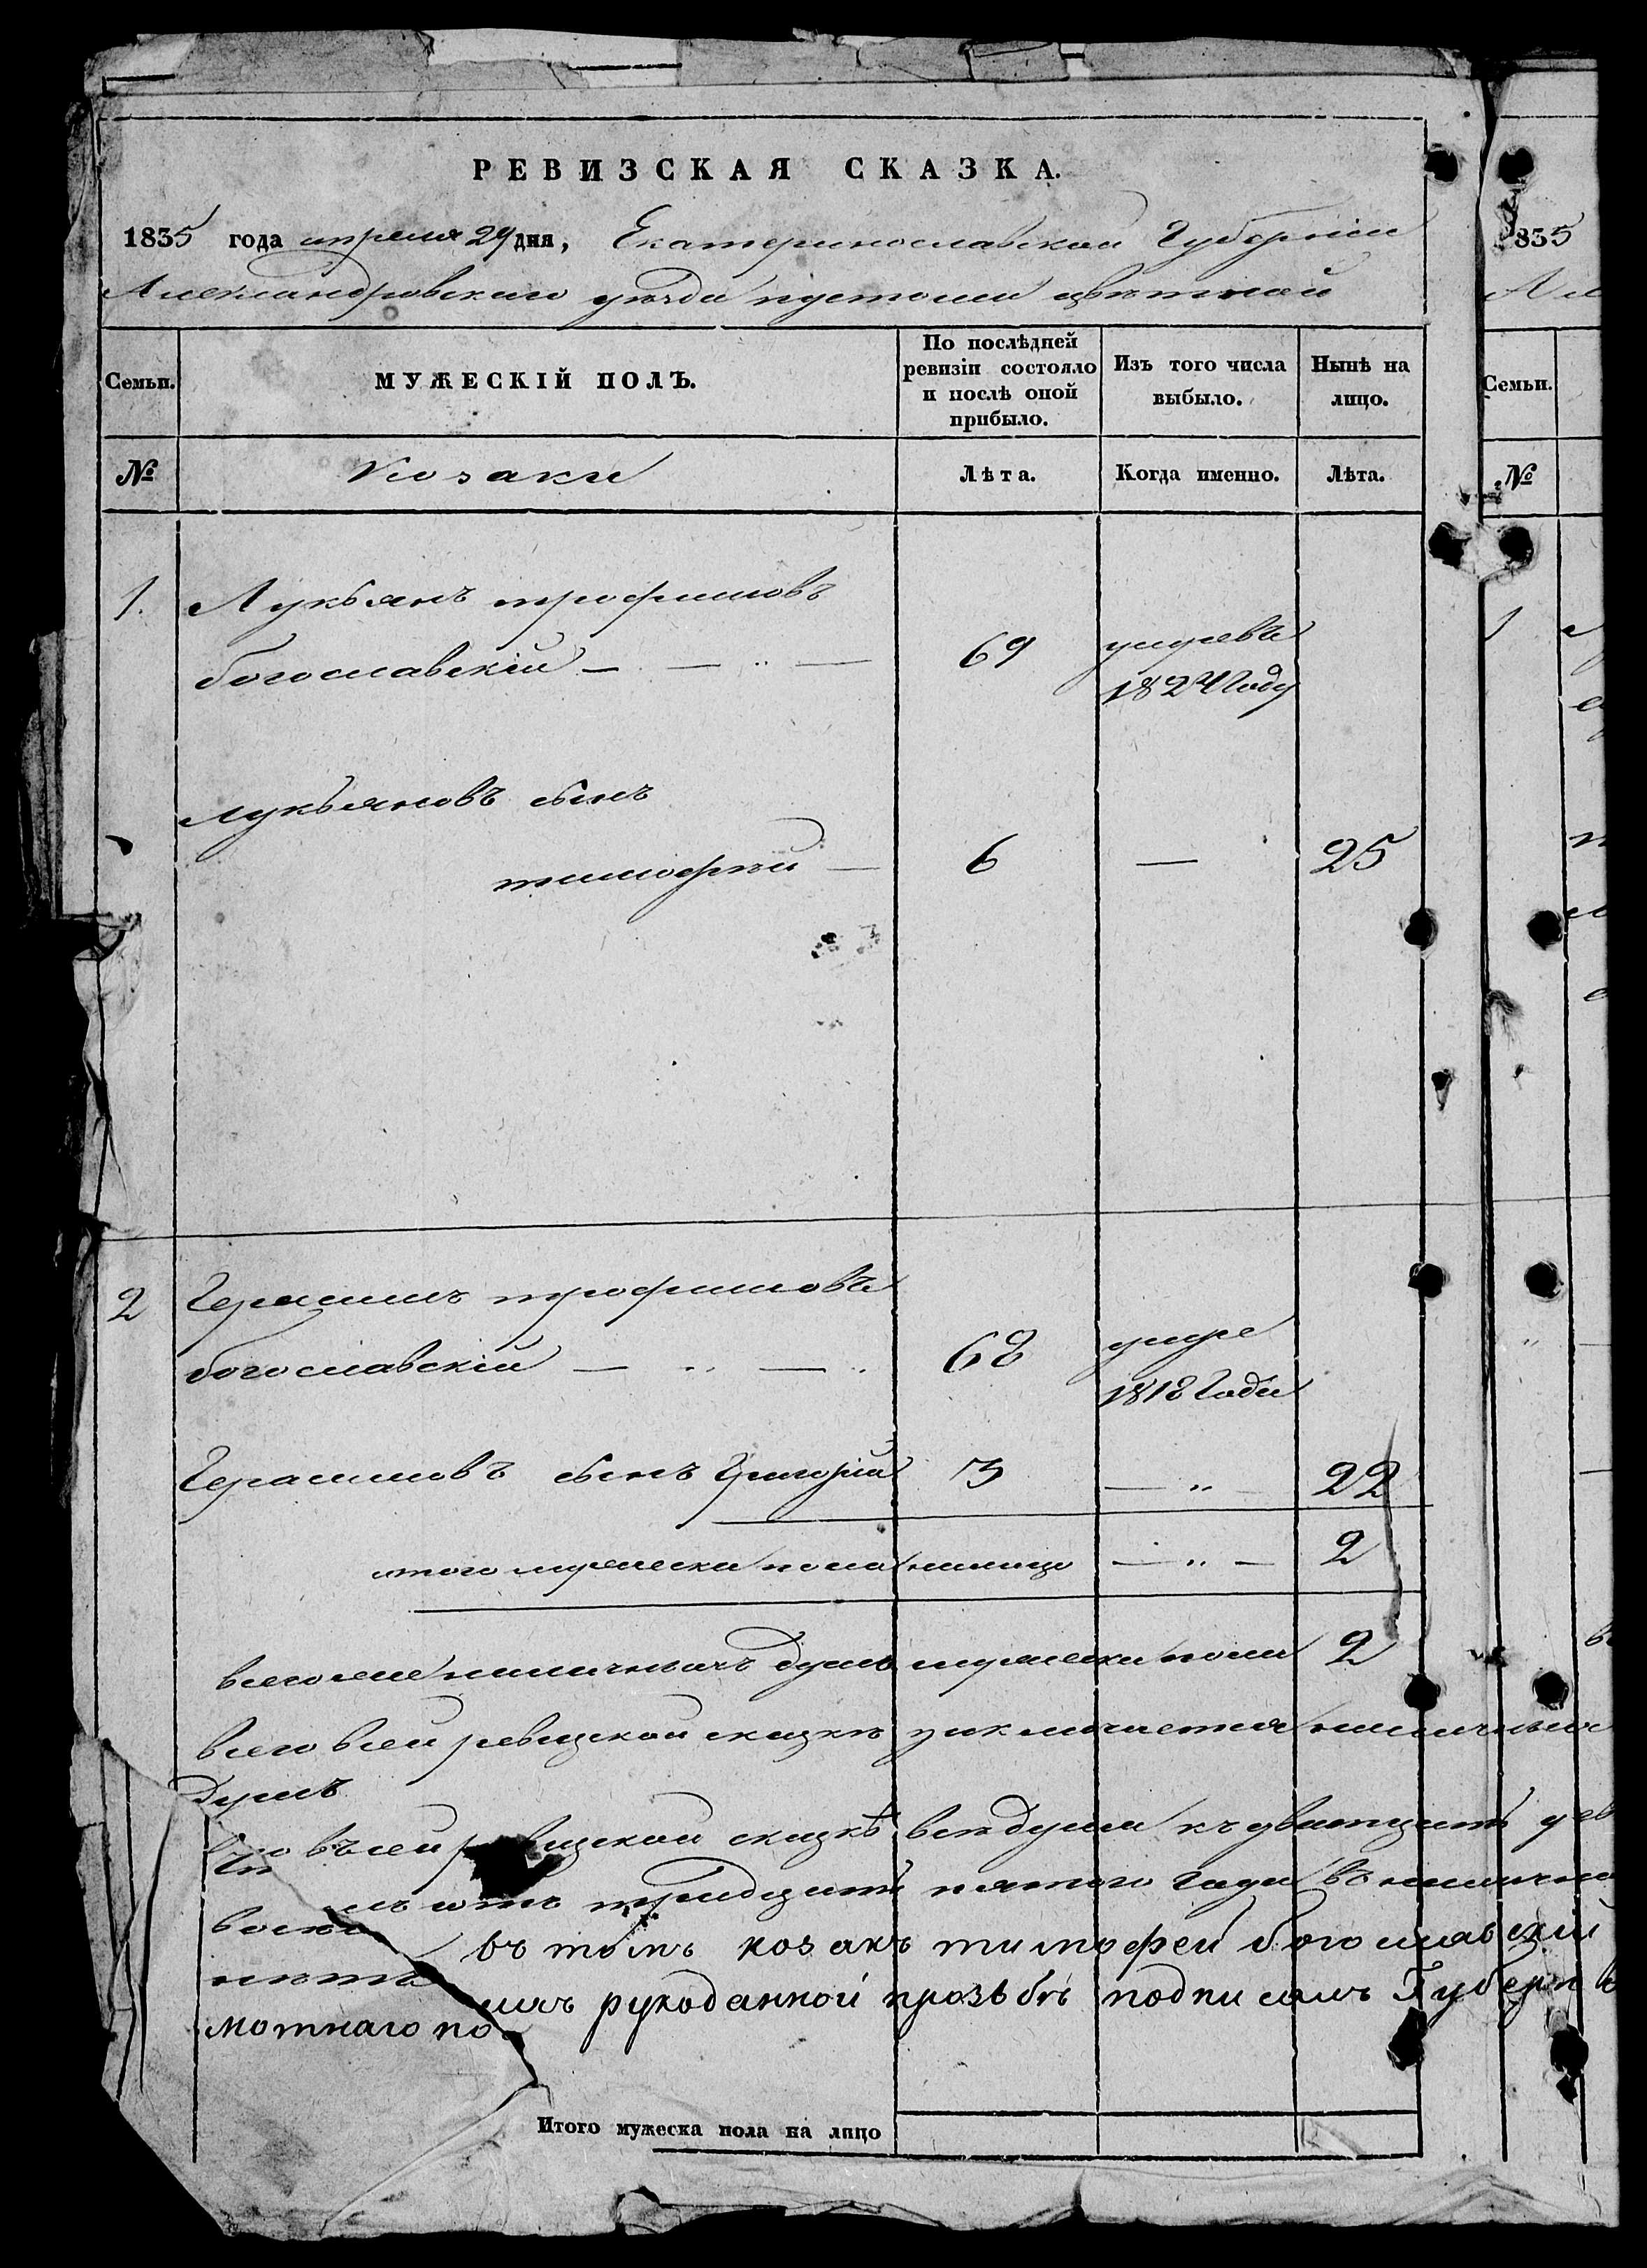 РЕВИЗСКАЯ СКАЗКА.
1835 года апреля 29 дня, Екатеринославской Губерніи
Александровского уезда пустоши цветной
Семьи.
МУЖЕСКІЙ ПОЛЪ.
По послѣдней ревизіи состояло и послѣ оной прибыло.
Изъ того числа выбыло.
Нынѣ на лицо.
№
Козаки
Лѣта.
Когда именно.
Лѣта.
1. Лукьянъ трофимовъ
богославскій — — 69 умревъ
1824 Году
лукьяновъ сынъ
тимофѣй — 6 — 25
2 Герасимъ трофимовъ
богославскій — — 68 умре
1818 Года
Герасимовъ сынъ Григорій 3 — 22
итого мужеска пола налицо — 2
всего же наличныхъ душъ мужеска пола 2
всего всей ревизской сказкѣ заключается наличныхъ
душъ
Что въсей ревизской сказкѣ всѣ души къ дватцать
тридцать пятого Года въ налично
въ томъ козакъ тимофей богославскій
мотнаго по рукоданной прозьбѣ подписалъ Губерн
Итого мужеска пола на лицо
835
Семьи.
№
1